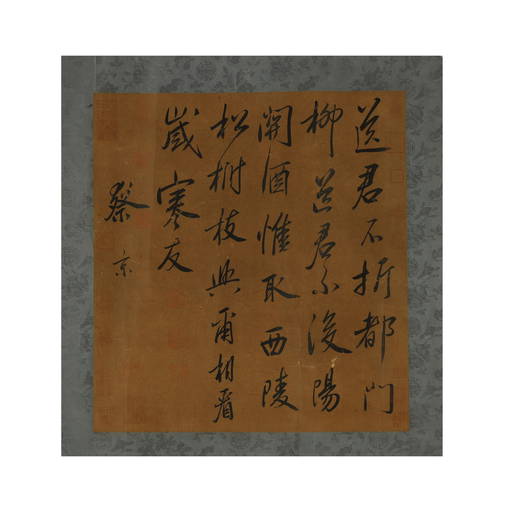 送君不折都門
柳送君不設陽
關酒惟取西陵
松樹枝與爾相看
歲寒友
蔡京